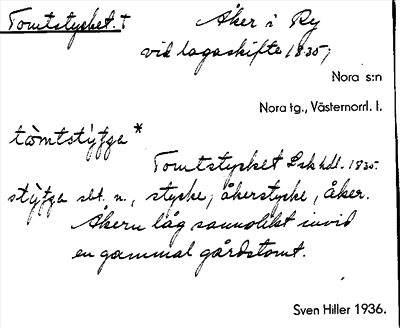 Tomtstycket. †
Åker i Ry
vid lagaskifte 1835;
Nora s:n
Nora tg., Västernorrl. l.
tòmtstỳʃʃa *
Tomtstycket Lsk hdl. 1835.
stỳʃʃa sbt. n., stycke, åkerstycke, åker.
Åkern låg sannolikt invid
en gammal gårdstomt.
Sven Hiller 1936.